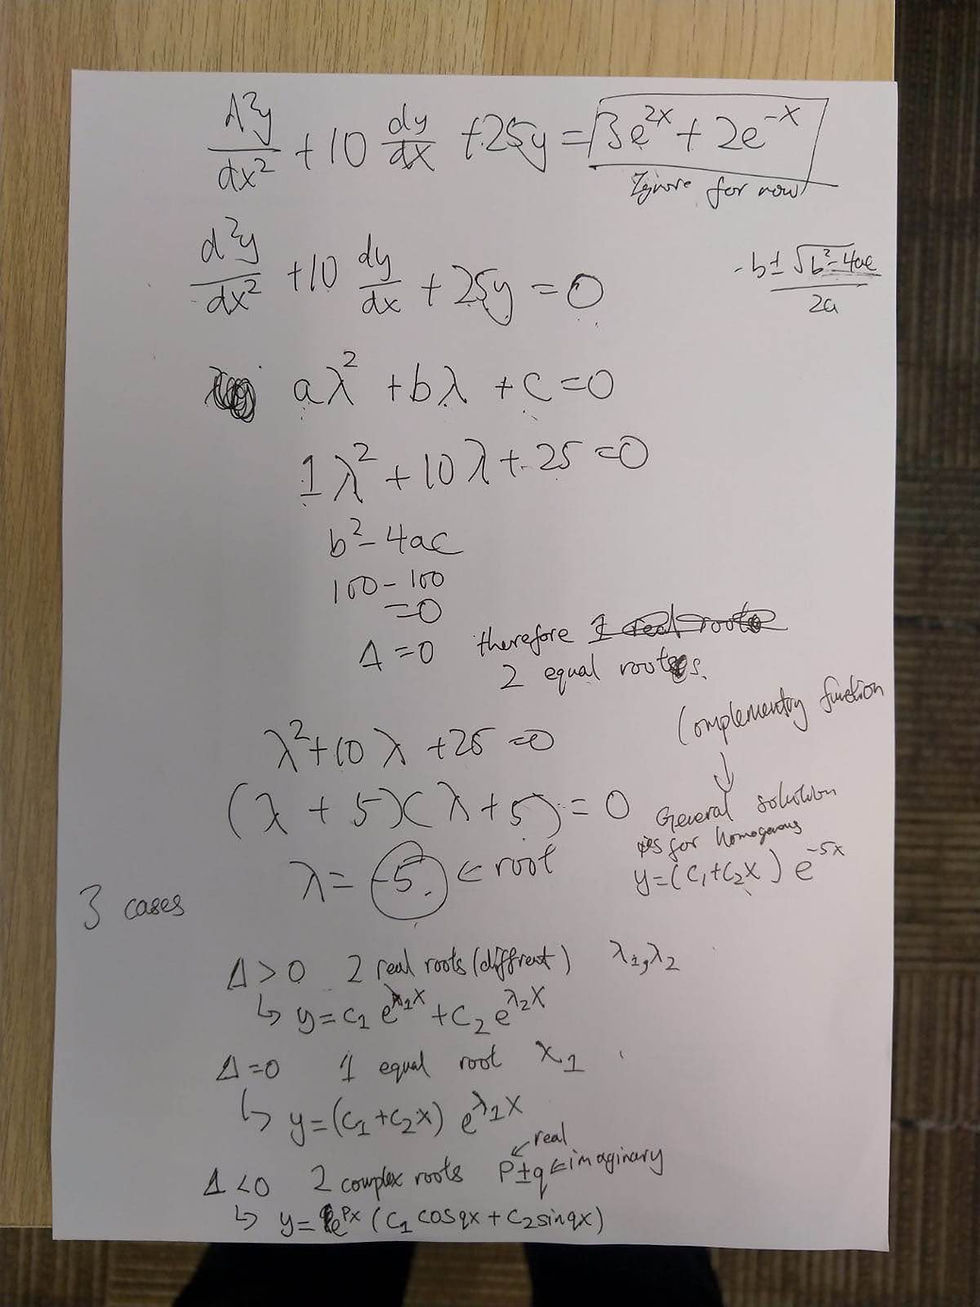 d²y/dx² + 10 dy/dx + 25y = 3e^{2x} + 2e^{-x}
Ignore for now
d²y/dx² + 10 dy/dx + 25y = 0
-b ± √(b²-4ac) / 2a
aλ² + bλ + c = 0
1λ² + 10λ + 25 = 0
b² - 4ac
100 - 100
= 0
Δ = 0 therefore 1 real roots
2 equal roots.
Complementry function
↓
λ² + 10λ + 25 = 0
(λ + 5)(λ + 5) = 0
General solution
for homogenous
y = (c₁ + c₂x) e^{-5x}
λ = -5. ← root
3 cases
Δ > 0 2 real roots (diffrent) λ₁, λ₂
↳ y = c₁ e^{λ₁x} + c₂ e^{λ₂x}
Δ = 0 1 equal root x₁
↳ y = (c₁ + c₂x) e^{λ₁x}
Δ < 0 2 complex roots P ± q ← imaginary
real
↳ y = e^{px} (c₁ cosqx + c₂ sinqx)